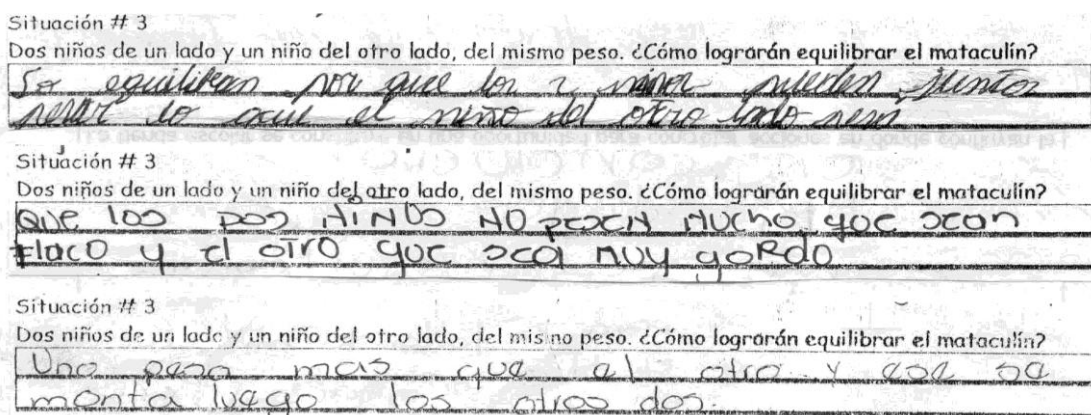 Situación # 3
Dos niños de un lado y un niño del otro lado, del mismo peso. ¿Cómo lograrán equilibrar el mataculín?
Se equilibran por que los 2 niños pueden juntos
pesar lo que el niño del otro lado pesa
Situación # 3
Dos niños de un lado y un niño del otro lado, del mismo peso. ¿Cómo lograrán equilibrar el mataculín?
QUE los DOS NIÑOS NO PESEN MUCHO, que sean
Flaco y el OTRO que sea muy goRdo
Situación # 3
Dos niños de un lado y un niño del otro lado, del mismo peso. ¿Cómo lograrán equilibrar el mataculín?
Uno pesa mas que el otro y ese se
monta luego los otros dos.